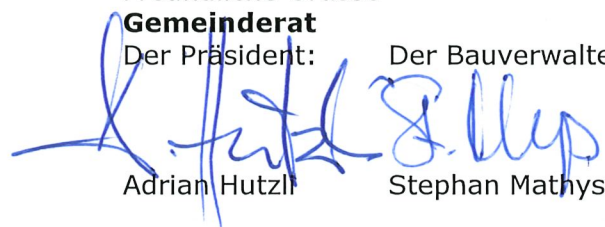 Gemeinderat
Der Präsident: Der Bauverwalte
A. Hutzli St. Mathys
Adrian Hutzli Stephan Mathys